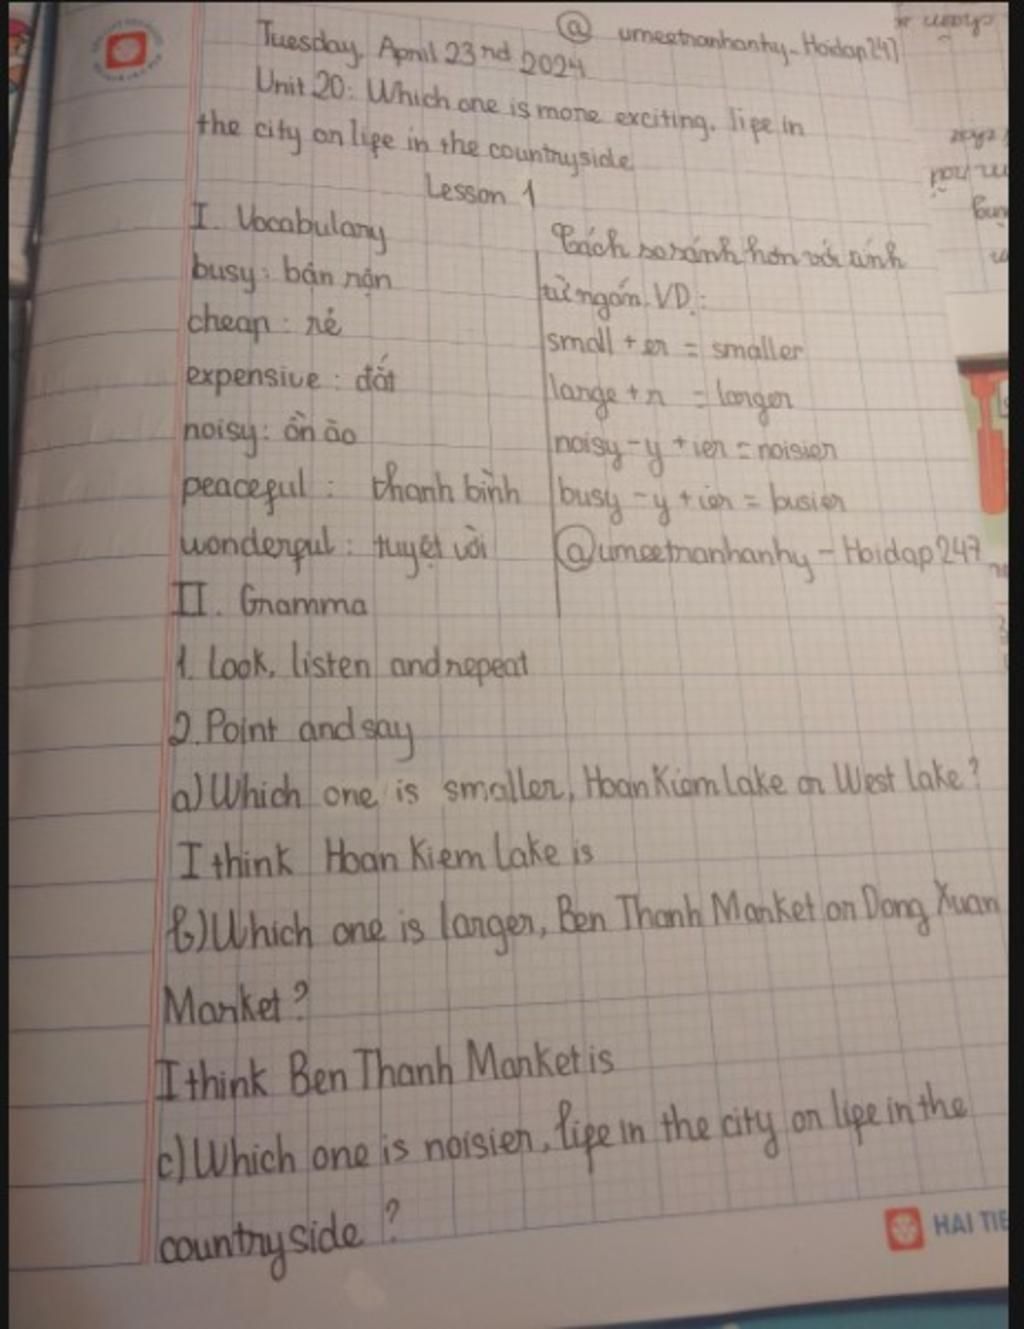 @ umeetnanhanhy_Hoidap247
Tuesday, April 23nd 2024
Unit 20: Which one is more exciting. life in
the city or life in the countryside
Lesson 1
I. Vocabulary
busy: bận rộn
cheap: rẻ
expensive: đắt
noisy: ồn ào
peaceful: thanh bình
wonderful: tuyệt vời
Cách so sánh hơn với tính
từ ngắn. VD:
small + er = smaller
large + r = larger
noisy - y + ier = noisier
busy - y + ier = busier
@umeetnanhanhy - Hoidap247
II. Gramma
1. Look, listen and repeat
2. Point and say
a) Which one is smaller, Hoan Kiem Lake or West lake?
I think Hoan Kiem Lake is
b) Which one is larger, Ben Thanh Market or Dong Xuan
Market?
I think Ben Thanh Market is
c) Which one is noisier, life in the city or life in the
countryside?
HAI TIE